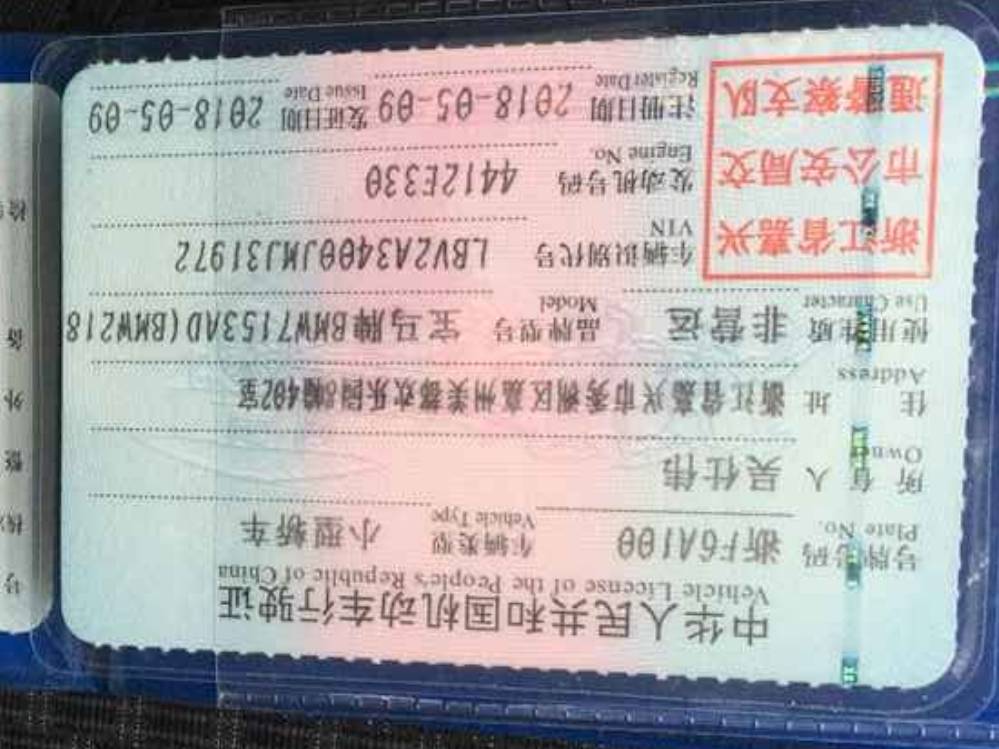 中华人民共和国机动车行驶证
Vehicle License of the People's Republic of China
号牌号码 浙F6A100 车辆类型 小型轿车
Plate No. Vehicle Type
所有人 吴仕伟
Owner
住址 浙江省嘉兴市秀洲区嘉州美都欢乐园8幢402室
Address
使用性质 非营运 品牌型号 宝马牌BMW7153AD(BMW218
Use Character Model
浙江省嘉兴
市公安局交
通警察支队
车辆识别代号 LBV2A3400JMJ31972
VIN
发动机号码 4412E330
Engine No.
注册日期 2018-05-09 发证日期 2018-05-09
Register Date Issue Date